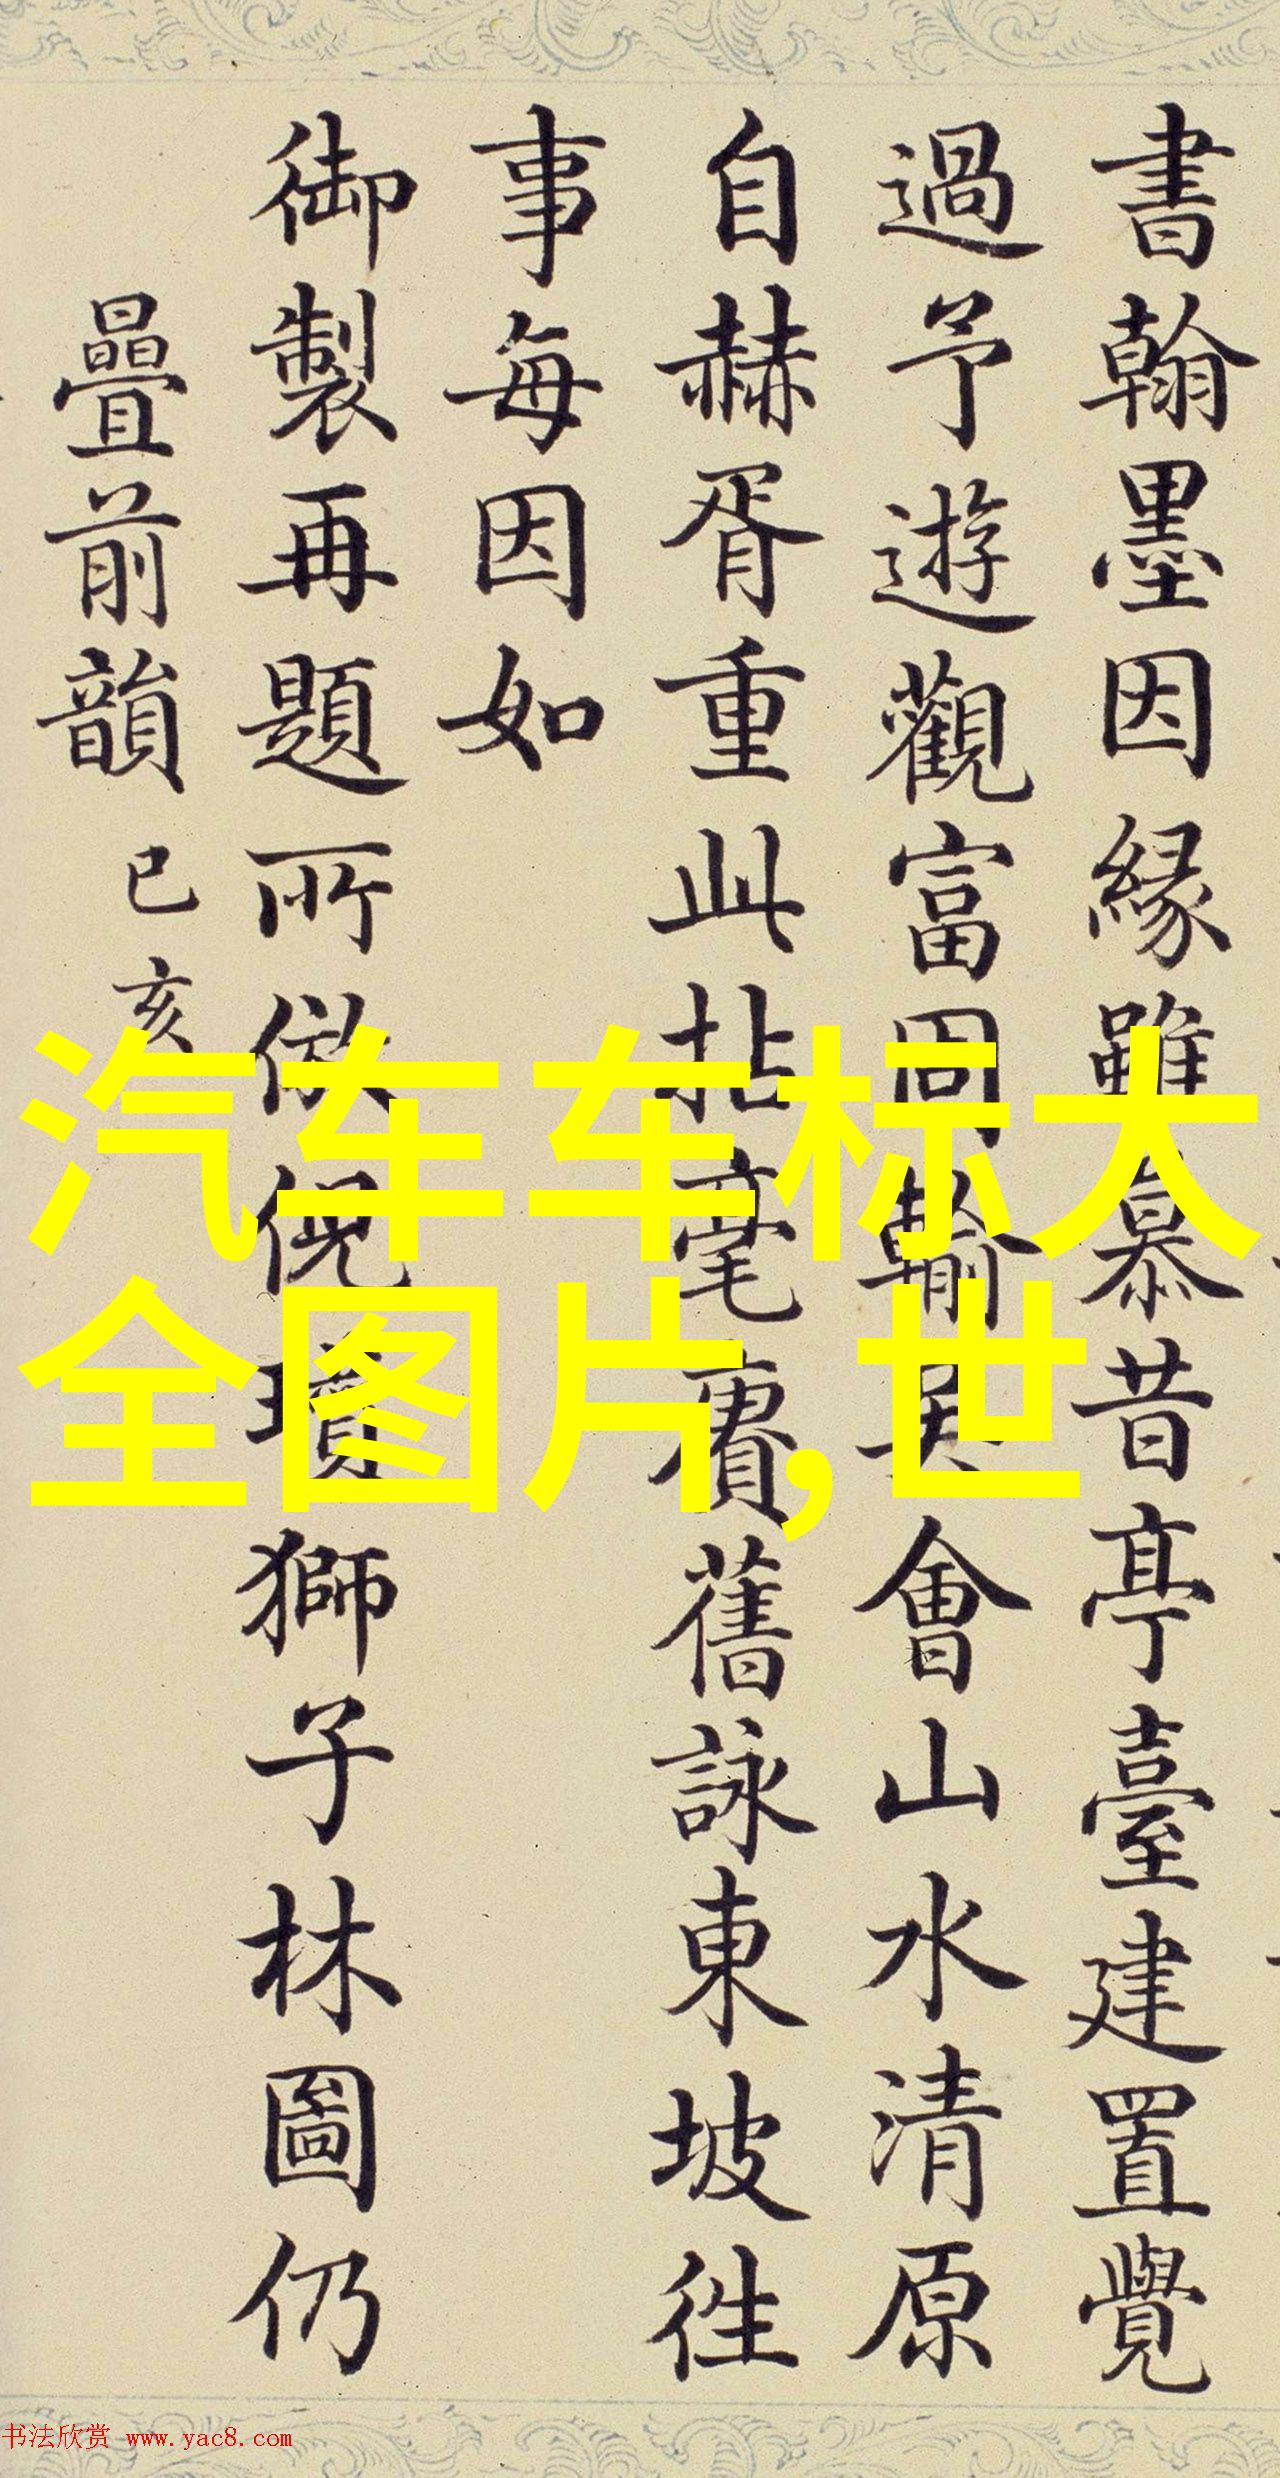 書翰墨因緣雖慕昔亭臺建置覺
過予遊觀富同輸吳會山水清原
自赫胥重此拈毫賡舊詠東坡徃
事每因如
御製再題所倣倪瓚獅子林圖仍
疊前韻 已亥
汽车车标大
全图片,世
书法欣赏 www.yac8.com